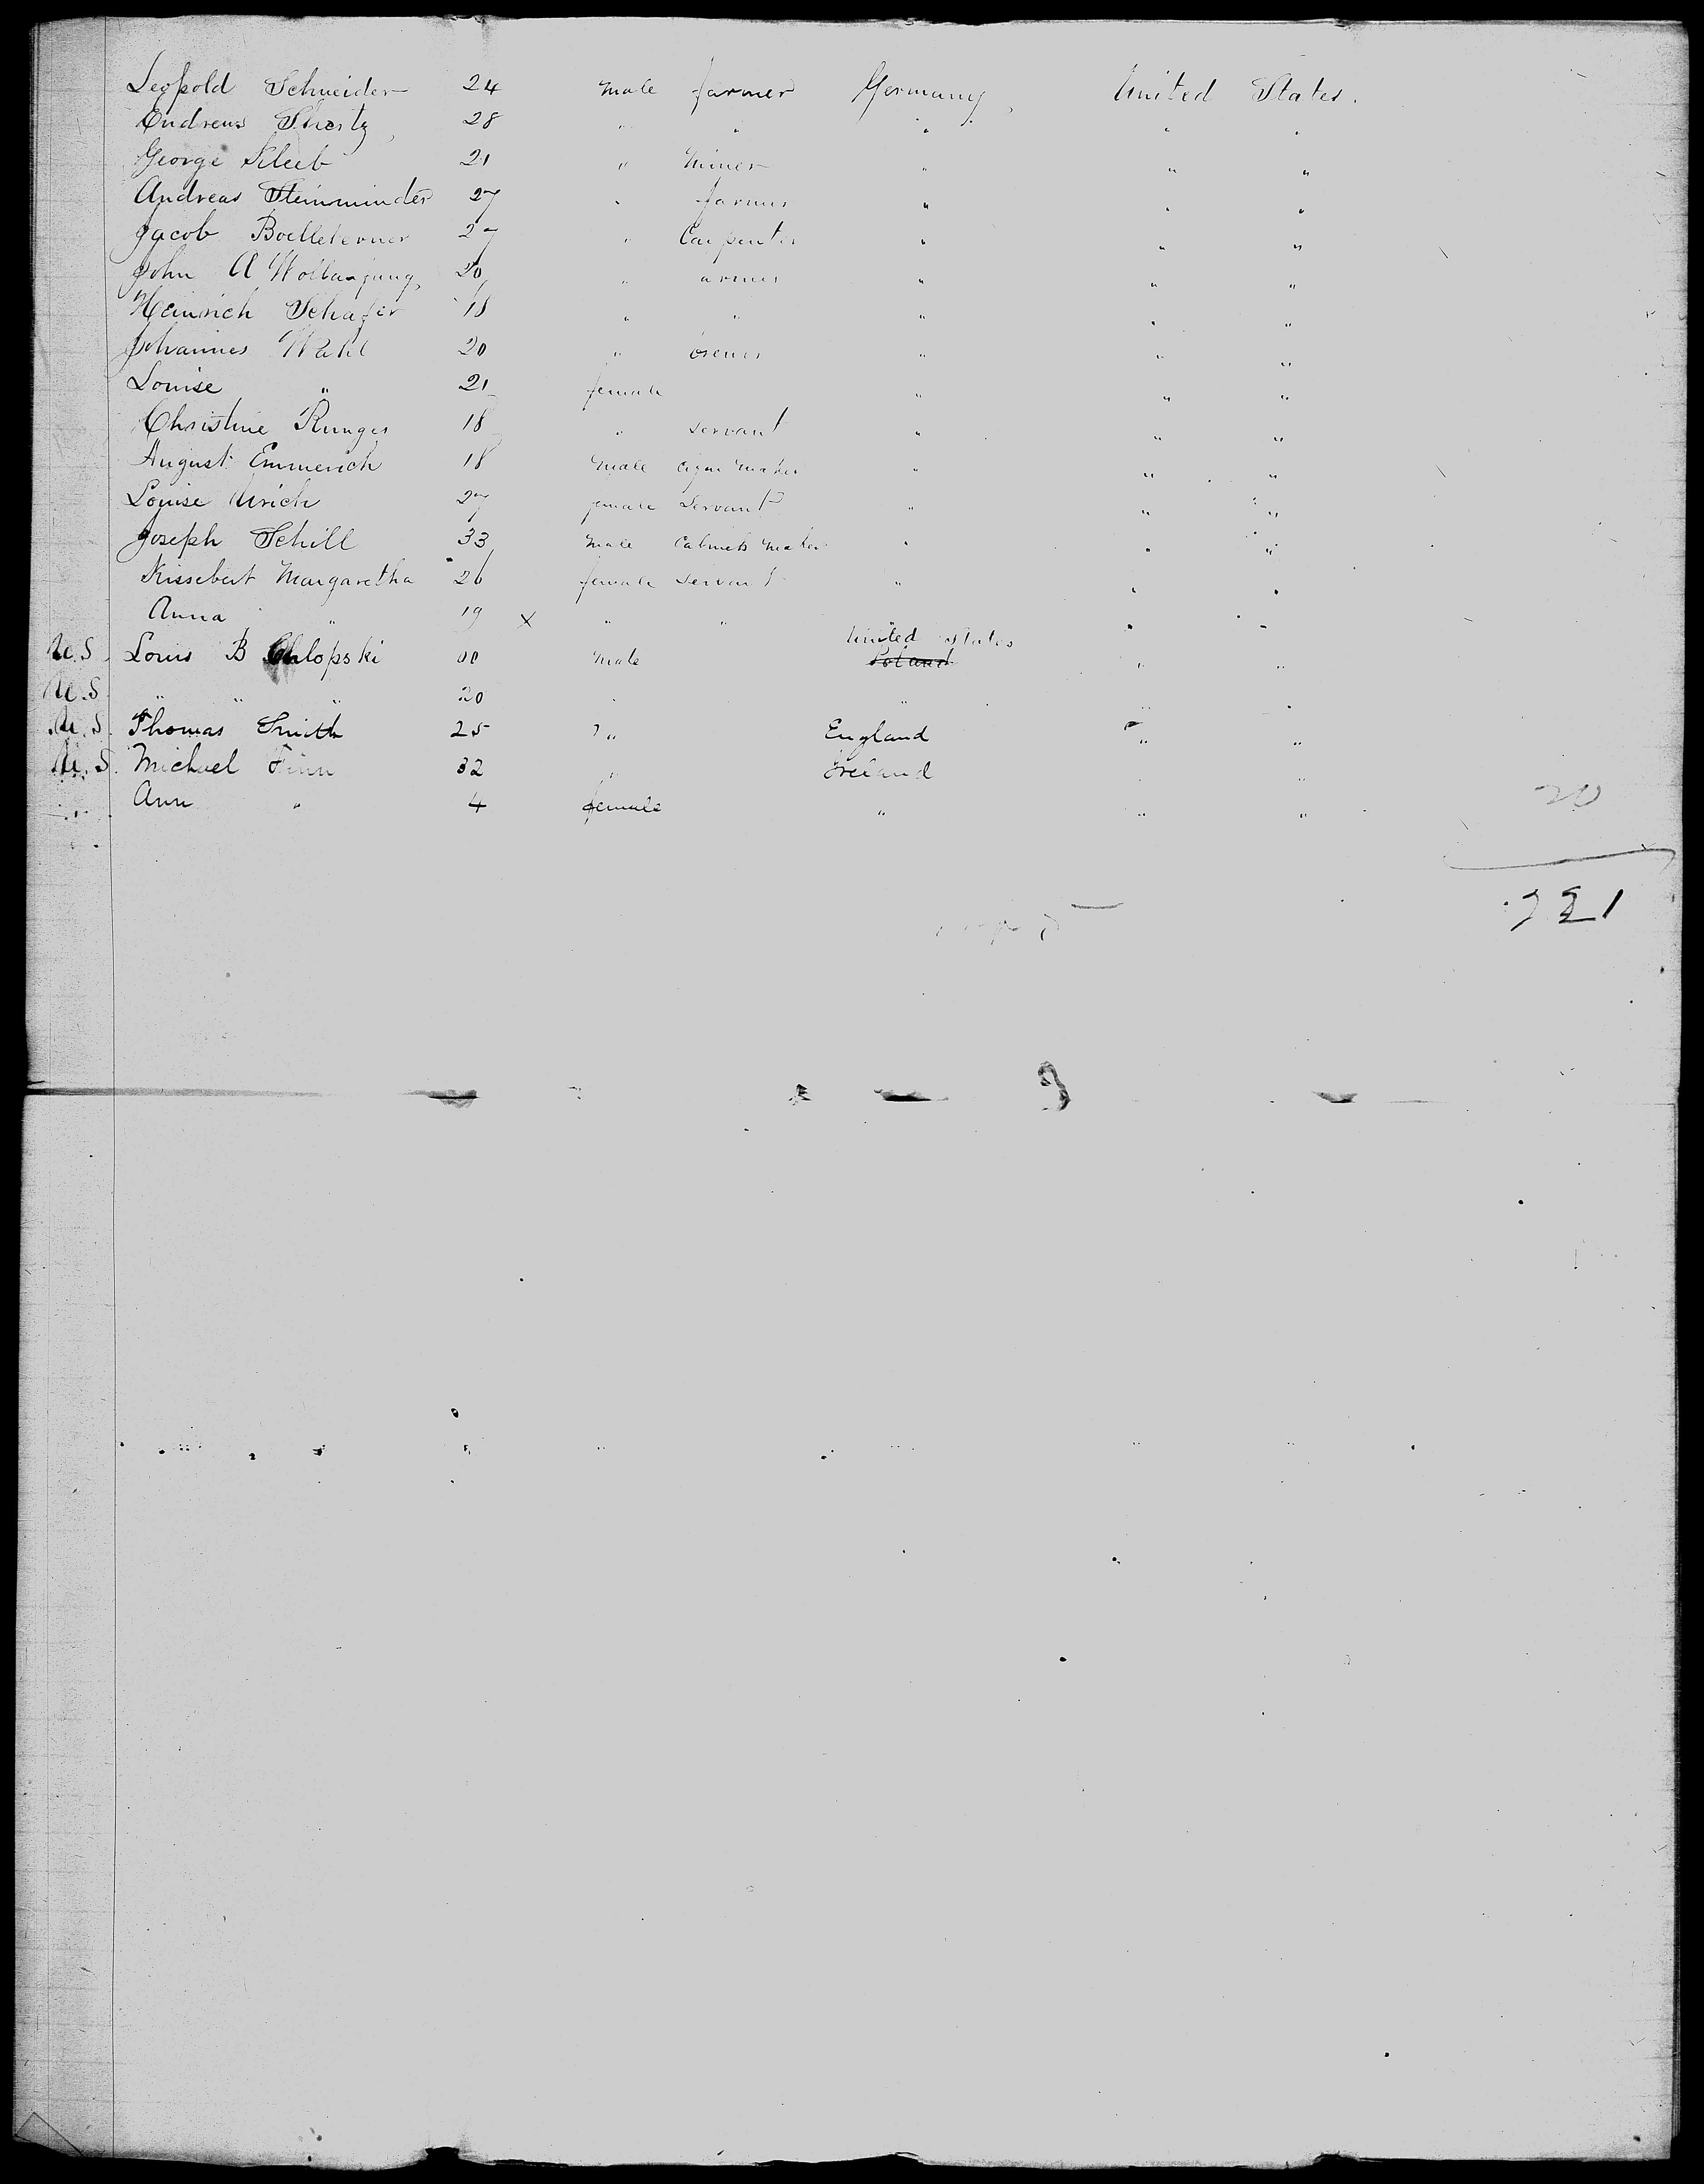 Leopold Schneider 24 male farmer Germany, United States.
Andreas 28 " " " " "
George 21 " Miner " " "
Andreas Steinminder 27 " farmer " " "
Jacob 27 " Carpenter " " "
John A 20 " armer " " "
Heinrich Schafer 18 " " " " "
Johannes Wahl 20 " " " "
Louise " 21 female " " "
Christine Runges 18 " servant " " "
August Emmerich 18 male cigar maker " " "
Louise Urich 27 female servant " " "
Joseph Schill 33 male Cabinet maker " " "
Kissebert Margaretha 26 female servant " " "
Anna " 19 x " " " "
United States
U.S. Louis B Chlopski male Poland " "
U.S. " " " 20 " " " "
U.S. Thomas Smith 25 " England " "
U.S. Michael Finn 32 " Ireland "
Ann " 4 female " " "
20
221